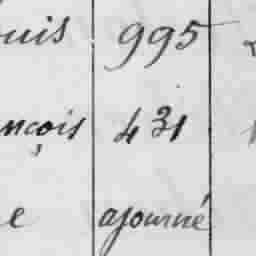 uis 995
nçois 431
e ajourné